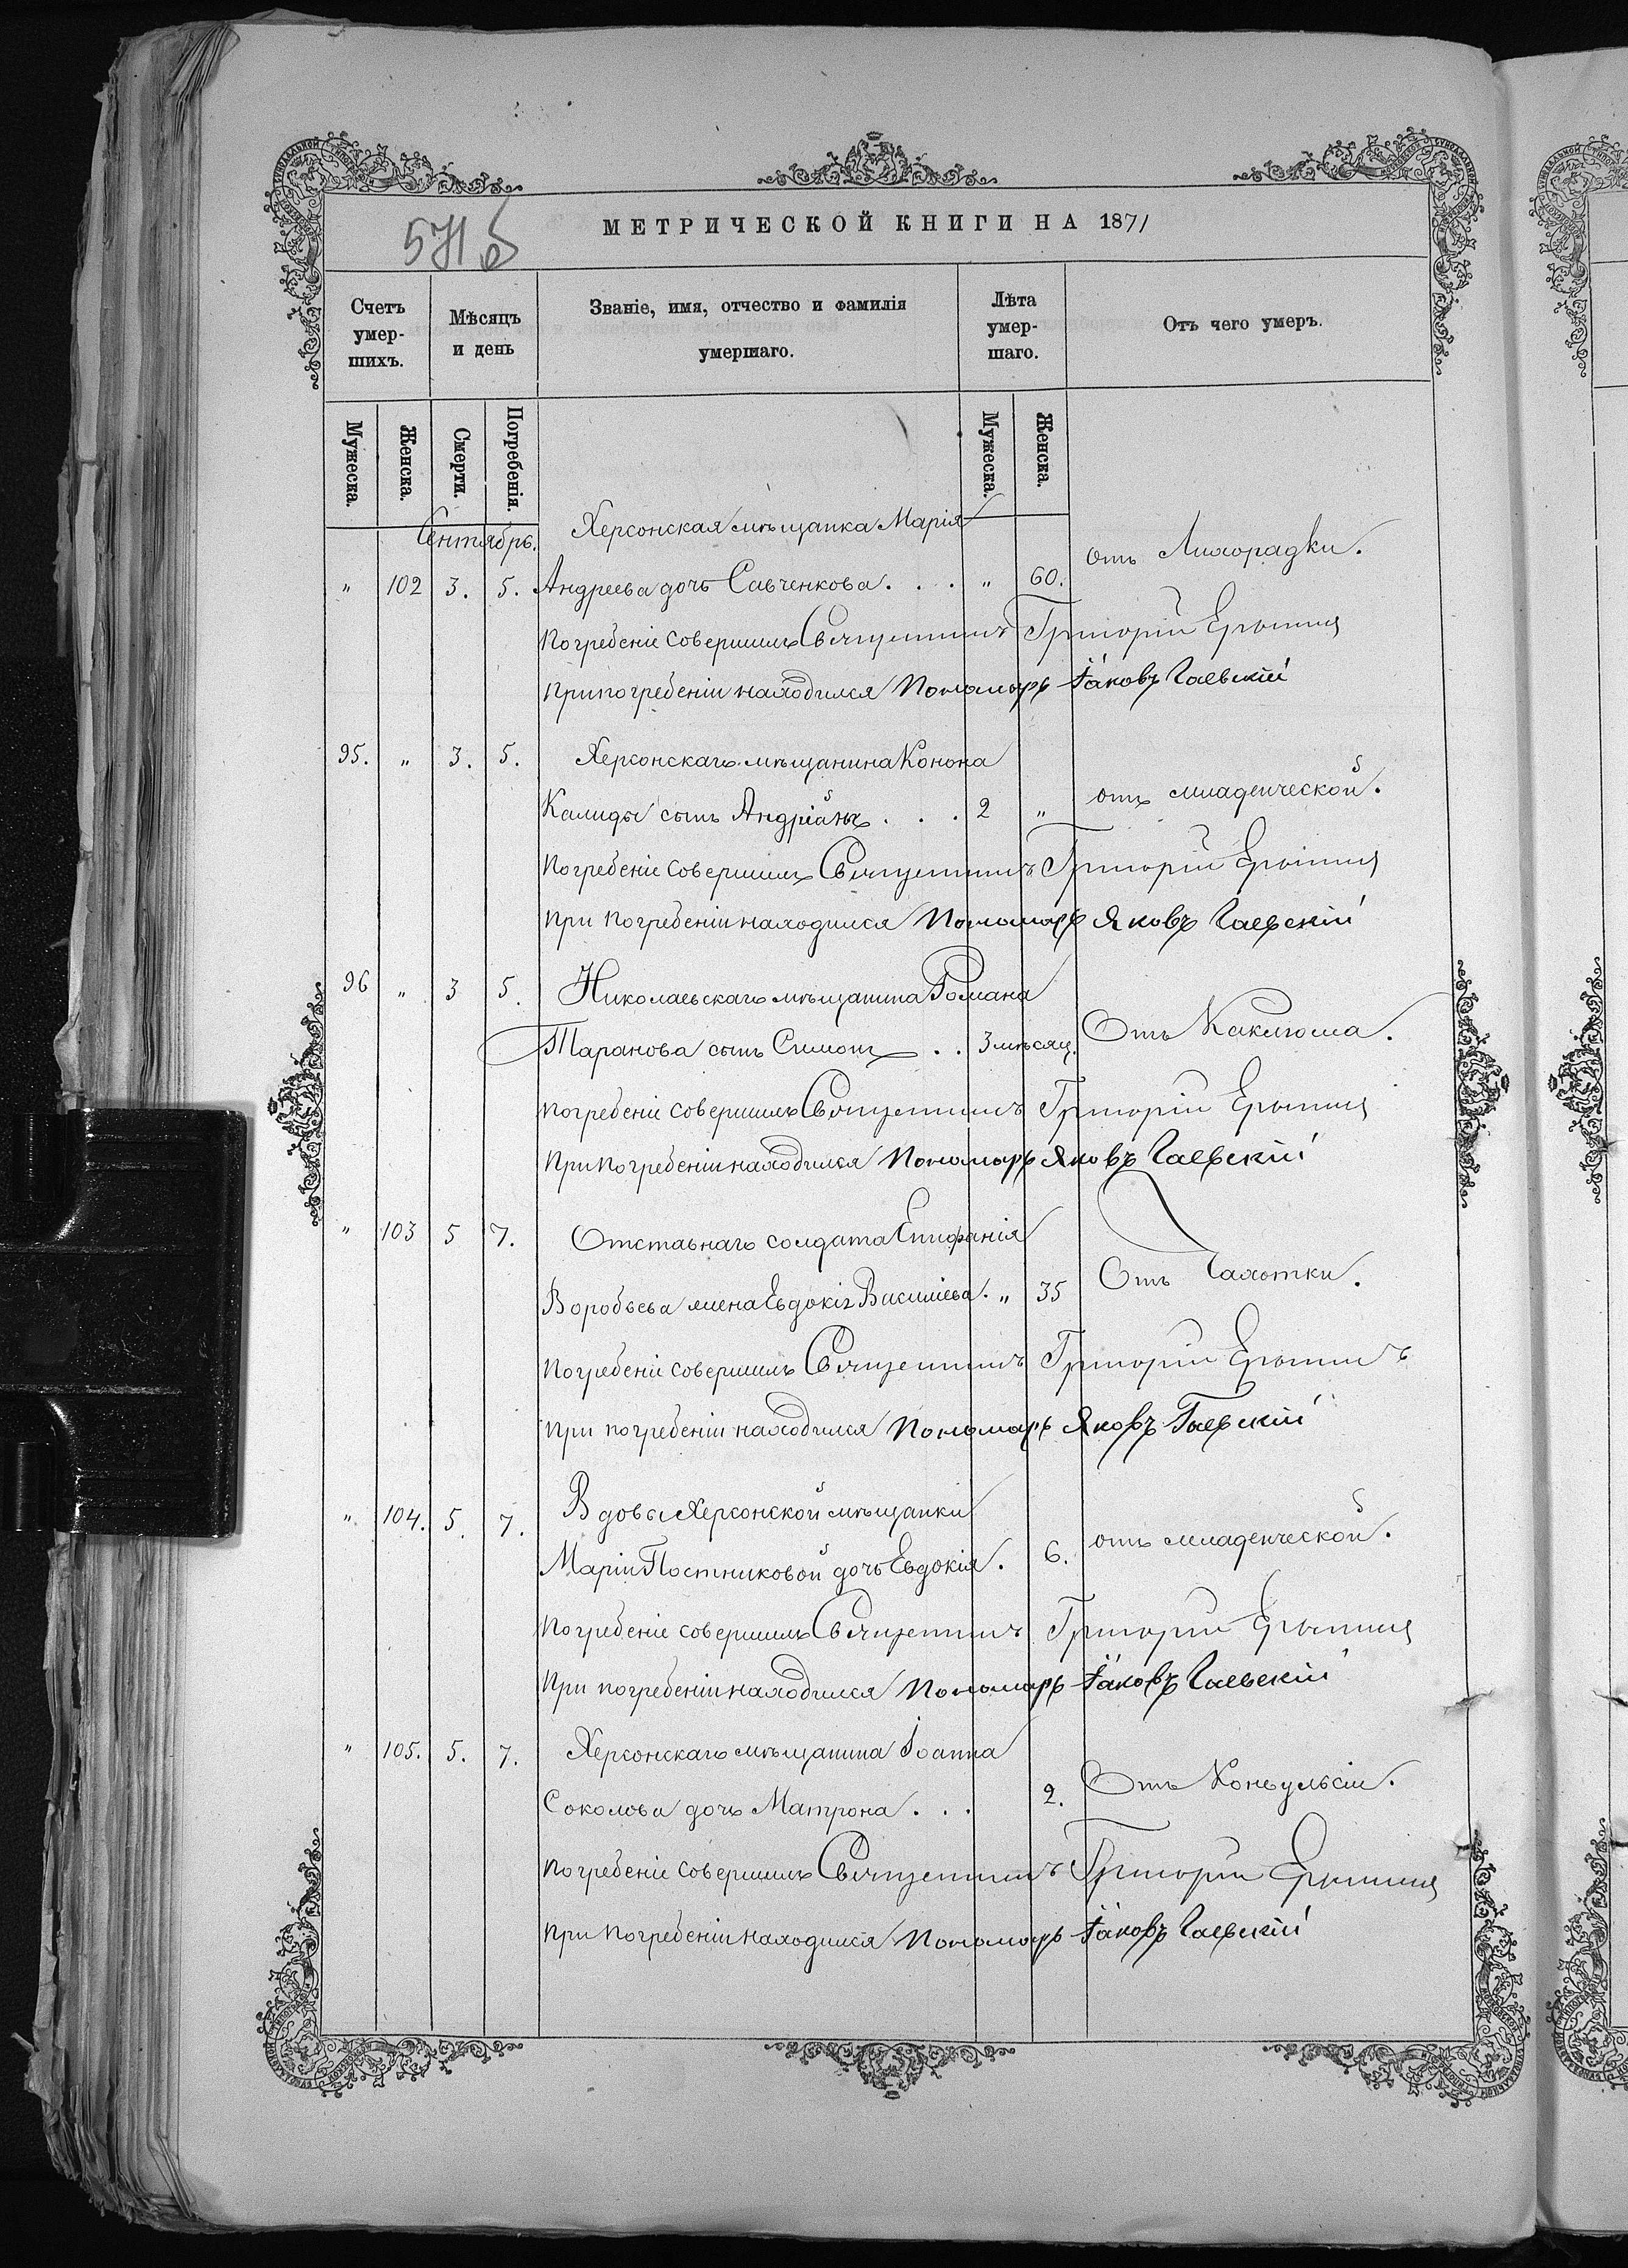 571 б
МЕТРИЧЕСКОЙ КНИГИ НА 1871
Счетъ умер-шихъ.
Мѣсяцъ и день
Званіе, имя, отчество и фамилія умершаго.
Лѣта умер-шаго.
Отъ чего умеръ.
Мужеска. Женска. Смерти. Погребенія. Мужеска. Женска.
Сентябрь. Херсонская мѣщанка Марія
" 102 3. 5. Андреева дочь Савченкова . . . " 60. отъ Лихорадки.
Погребеніе совершилъ Священникъ Григорій
При погребеніи находился Пономарь Іаковъ Гаевскій
95. " 3. 5. Херсонскаго мѣщанина Конона
сынъ Андріанъ . . . 2 " отъ младенческой.
Погребеніе совершилъ Священникъ Григорій
При погребеніи находился Пономарь Яковъ Гаевскій
96 " 3 5. Николаевскаго мѣщанина Романа
Таранова сынъ Симонъ . . 3 мѣсяц. Отъ
Погребеніе совершилъ Священникъ Григорій
При погребеніи находился Пономарь Яковъ Гаевскій
" 103 5 7. Отставнаго солдата Епифанія
Воробьева жена Евдокія Василіева. " 35 Отъ Чахотки.
Погребеніе совершилъ Священникъ Григорій
При погребеніи находился Пономарь Яковъ Гаевскій
" 104. 5. 7. Вдовы Херсонской мѣщанки
Маріи Постниковой дочь Евдокія. 6. отъ младенческой.
Погребеніе совершилъ Священникъ Григорій
При погребеніи находился Пономарь Іаковъ Гаевскій
" 105. 5. 7. Херсонскаго мѣщанина Іоанна
Соколова дочь Матрона . . . 2. Отъ Конвульсіи.
Погребеніе совершилъ Священникъ Григорій
При погребеніи находился Пономарь Іаковъ Гаевскій